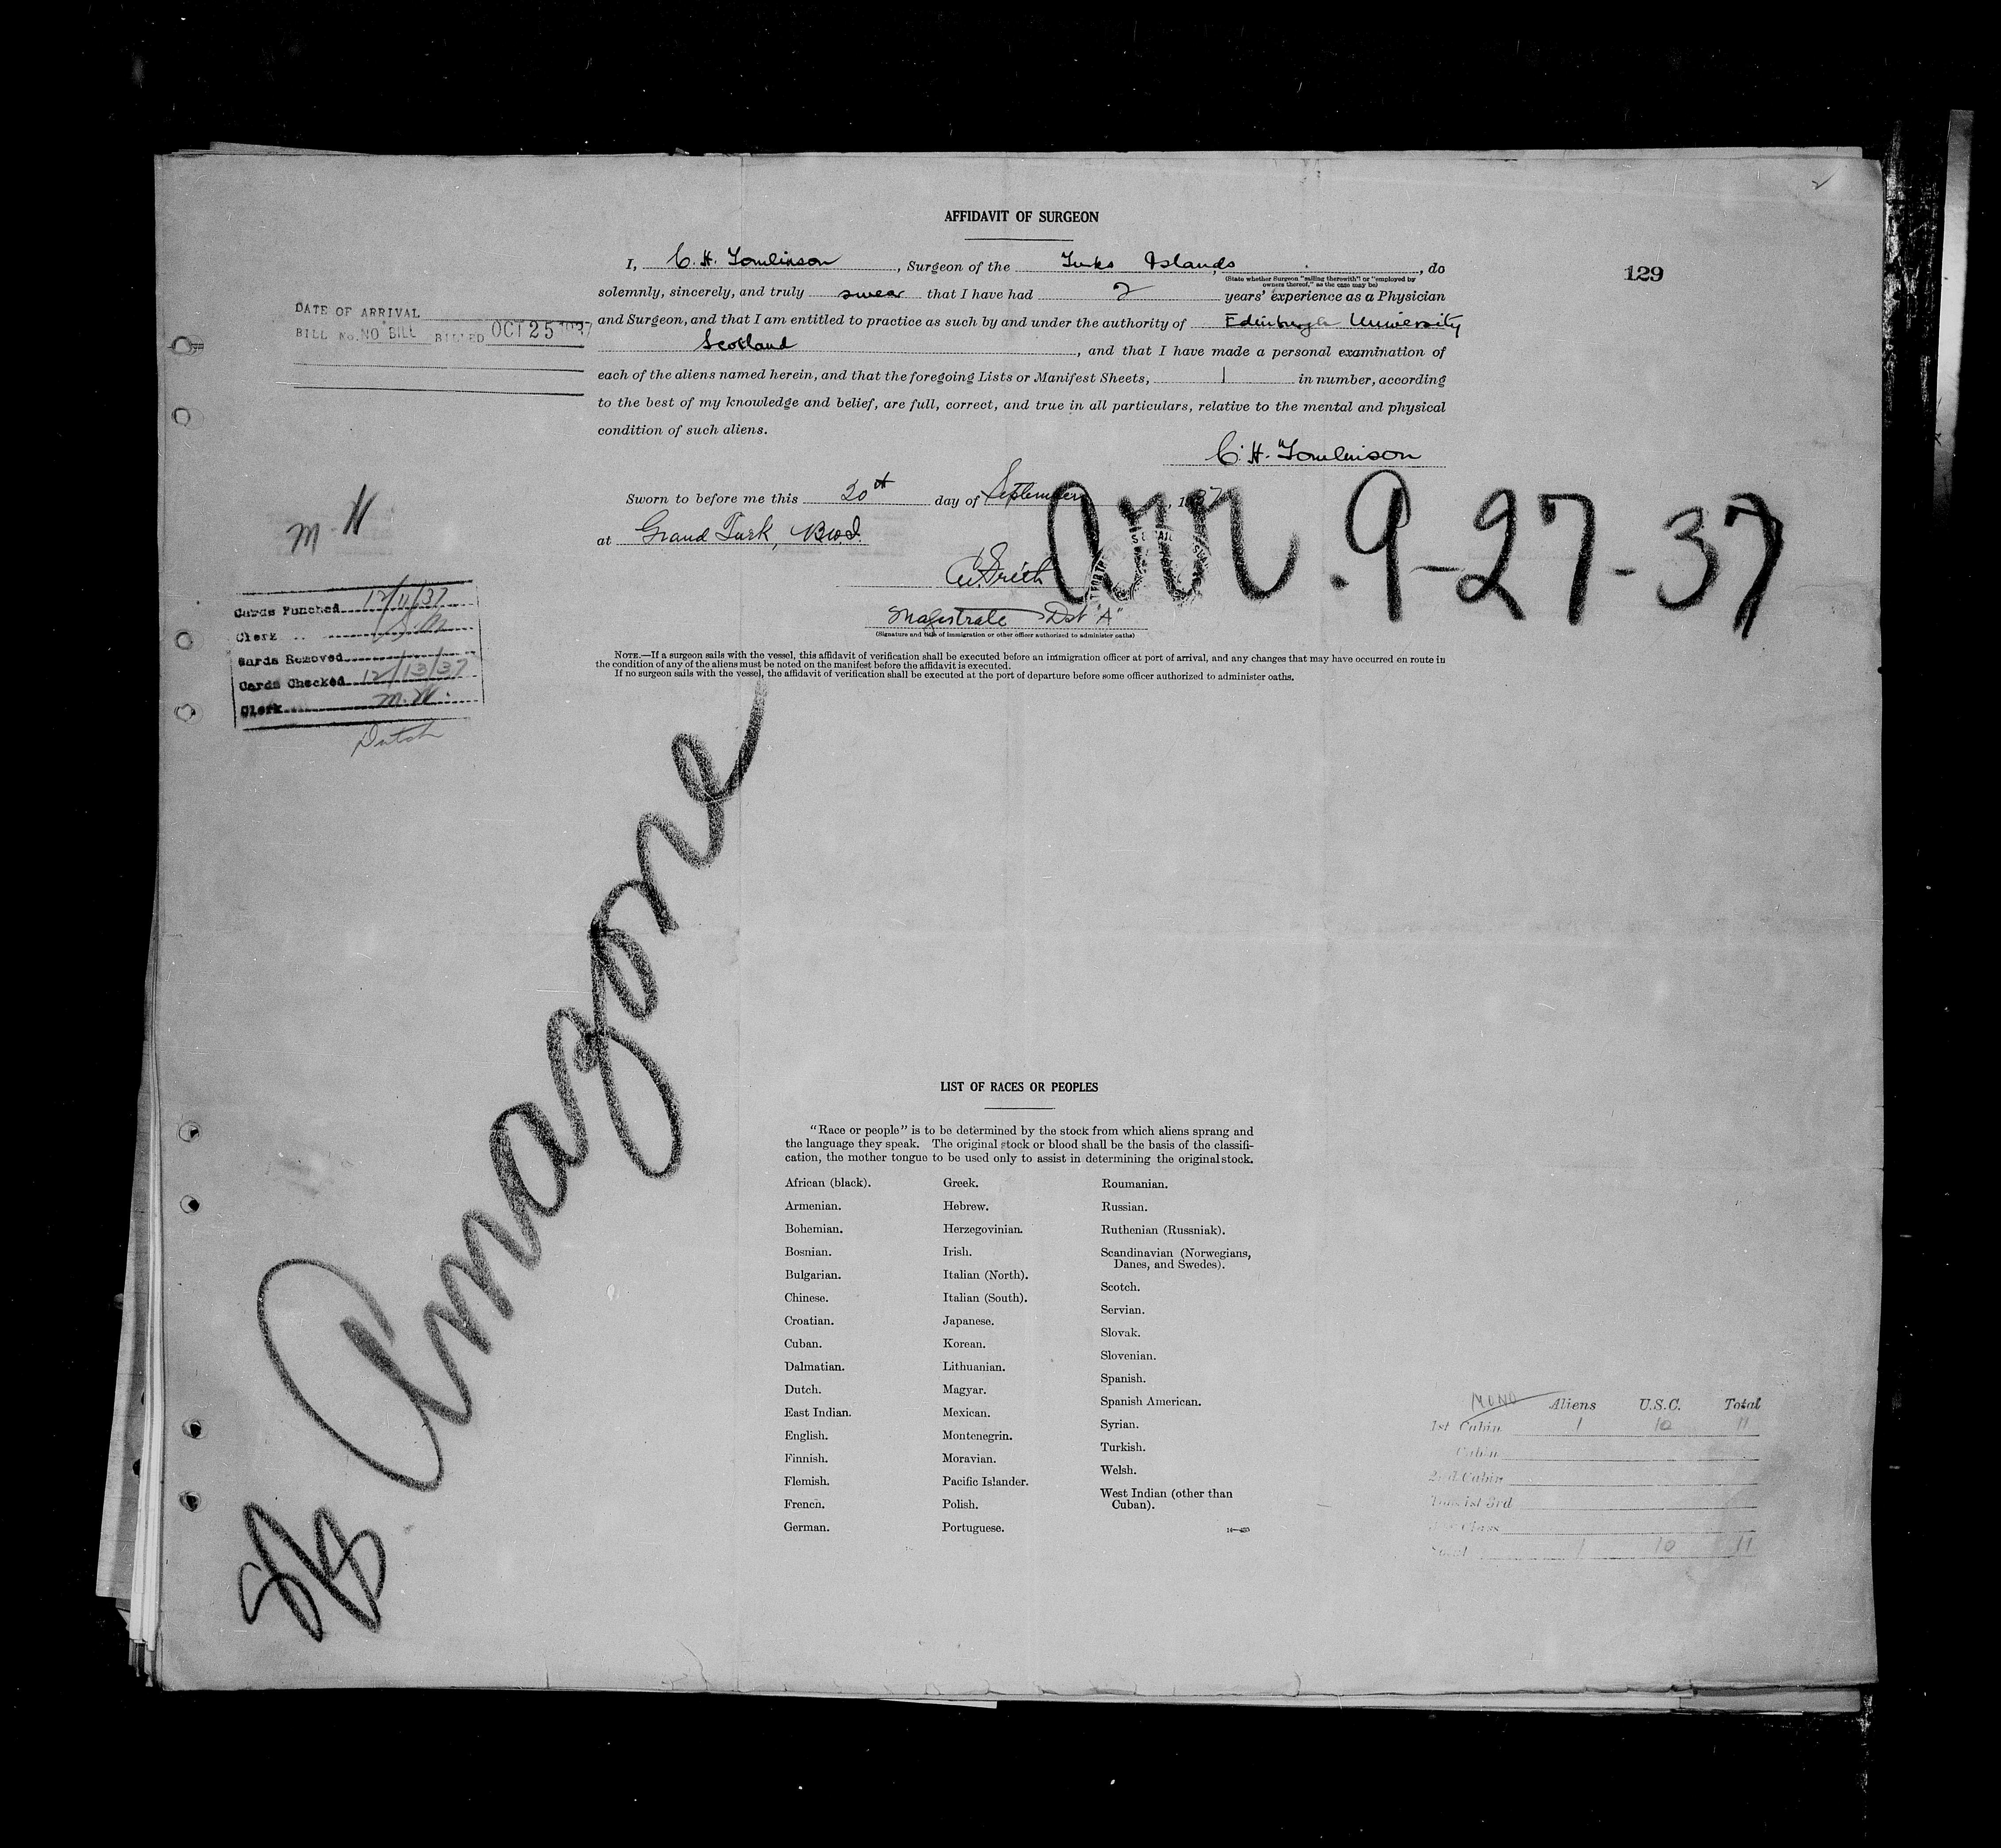 AFFIDAVIT OF SURGEON
129
I, C. H. Tomlinson, Surgeon of the Turks Islands, do
(State whether Surgeon "sailing therewith" or "employed by
owners thereof," as the case may be)
solemnly, sincerely, and truly swear that I have had 2 years' experience as a Physician
and Surgeon, and that I am entitled to practice as such by and under the authority of Edinburgh University
Scotland, and that I have made a personal examination of
each of the aliens named herein, and that the foregoing Lists or Manifest Sheets, 1 in number, according
to the best of my knowledge and belief, are full, correct, and true in all particulars, relative to the mental and physical
condition of such aliens.
C. H. Tomlinson
Sworn to before me this 20th day of September, 1937
at Grand Turk, B.W.I.
Magistrate Dist "A"
(Signature and title of immigration or other officer authorized to administer oaths)
NOTE.—If a surgeon sails with the vessel, this affidavit of verification shall be executed before an immigration officer at port of arrival, and any changes that may have occurred en route in
the condition of any of the aliens must be noted on the manifest before the affidavit is executed.
If no surgeon sails with the vessel, the affidavit of verification shall be executed at the port of departure before some officer authorized to administer oaths.
DATE OF ARRIVAL
BILL No. NO BILL BILLED OCT 25 1937
Arr. 9-27-37
Cards Punched 12/11/37
Clerk
Cards Removed
Cards Checked 12/13/37
Clerk M.W.
Dutch
SS. Amazone
LIST OF RACES OR PEOPLES
"Race or people" is to be determined by the stock from which aliens sprang and
the language they speak. The original stock or blood shall be the basis of the classifi-
cation, the mother tongue to be used only to assist in determining the original stock.
African (black).
Armenian.
Bohemian.
Bosnian.
Bulgarian.
Chinese.
Croatian.
Cuban.
Dalmatian.
Dutch.
East Indian.
English.
Finnish.
Flemish.
French.
German.
Greek.
Hebrew.
Herzegovinian.
Irish.
Italian (North).
Italian (South).
Japanese.
Korean.
Lithuanian.
Magyar.
Mexican.
Montenegrin.
Moravian.
Pacific Islander.
Polish.
Portuguese.
Roumanian.
Russian.
Ruthenian (Russniak).
Scandinavian (Norwegians,
Danes, and Swedes).
Scotch.
Servian.
Slovak.
Slovenian.
Spanish.
Spanish American.
Syrian.
Turkish.
Welsh.
West Indian (other than
Cuban).
Aliens U.S.C. Total
1st Cabin 1 10 11
Cabin
2nd Cabin
Tourist 3rd
Class
Total 1 10 11